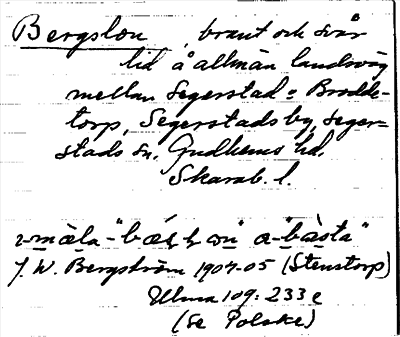 Bergslon, brant och svår
lid å allmän landsväg
mellan Segerstad o Brodde-
torp, Segerstads by, Seger-
stads sn. Gudhems hd.
Skarab. l.
J. W. Bergström 1904-05 (Stenstorp)
Ulma 109: 233 e
(se Polske)